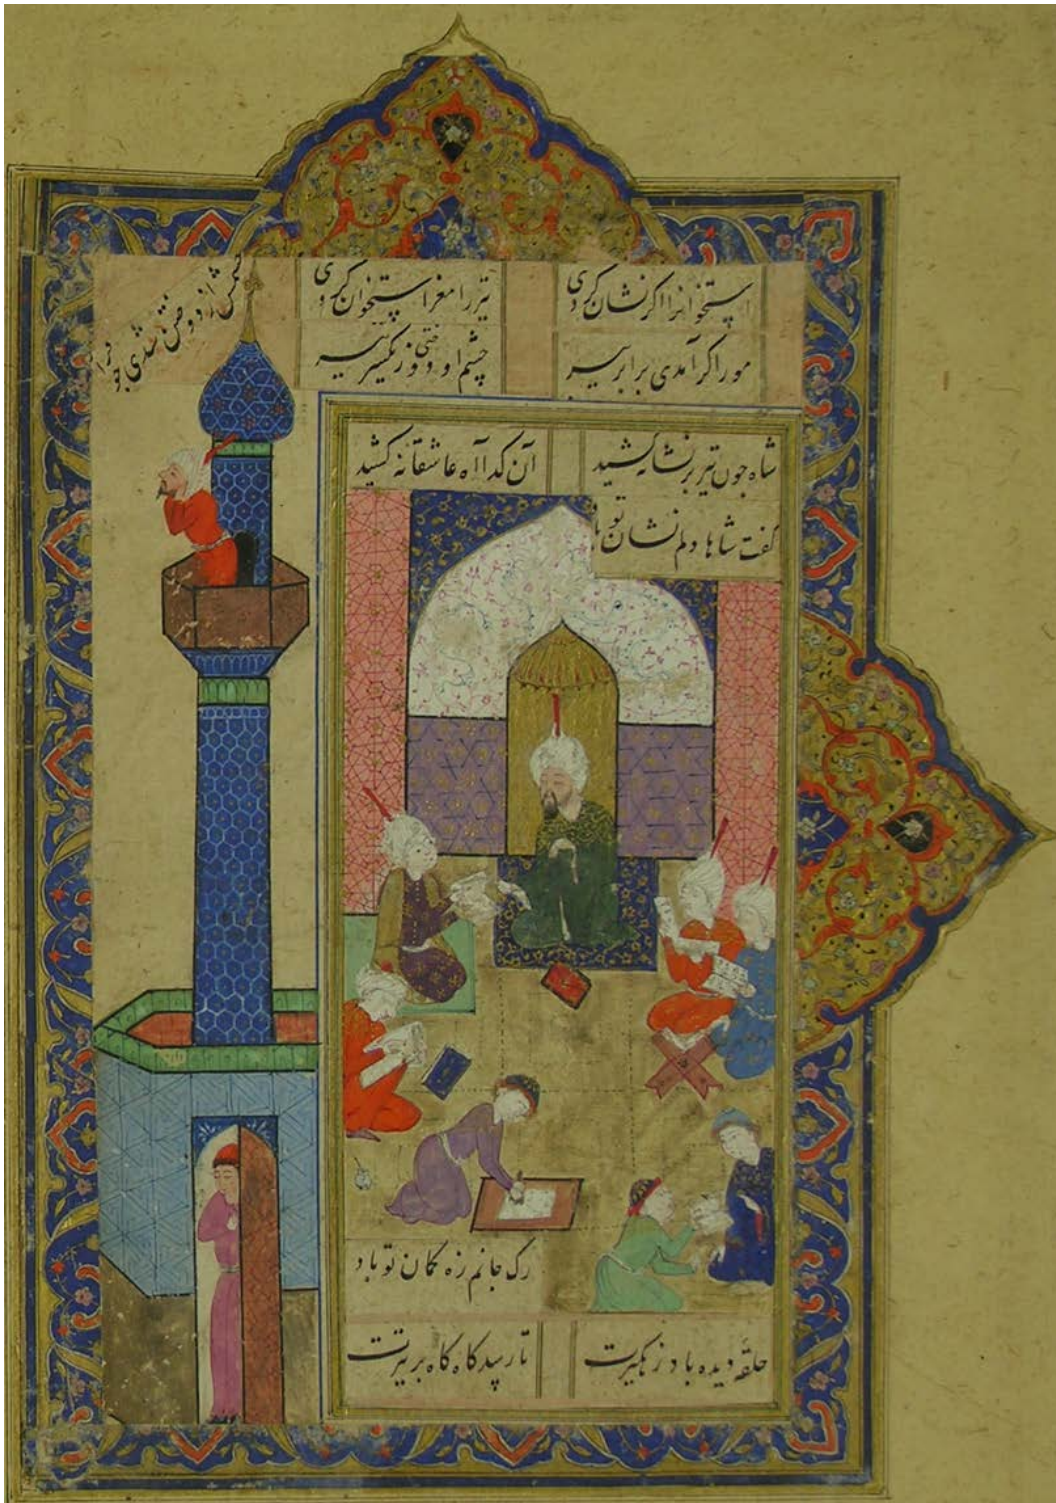 استخوانرا اکر نشان کردی تیر را مغز استخوان کردی
مور اکر آمدی برابر تیر چشم او دوختی ز یکسر تیر
از دوختن شدی
شاه جون تیر بر نشانه کشید آن کدا آه عاشقانه کشید
کفت شاها دلم نشان تو باد
رک جانم زه کمان تو باد
حلقه دیده باد زهکیرت تا رسد کاه کاه بر تیرت